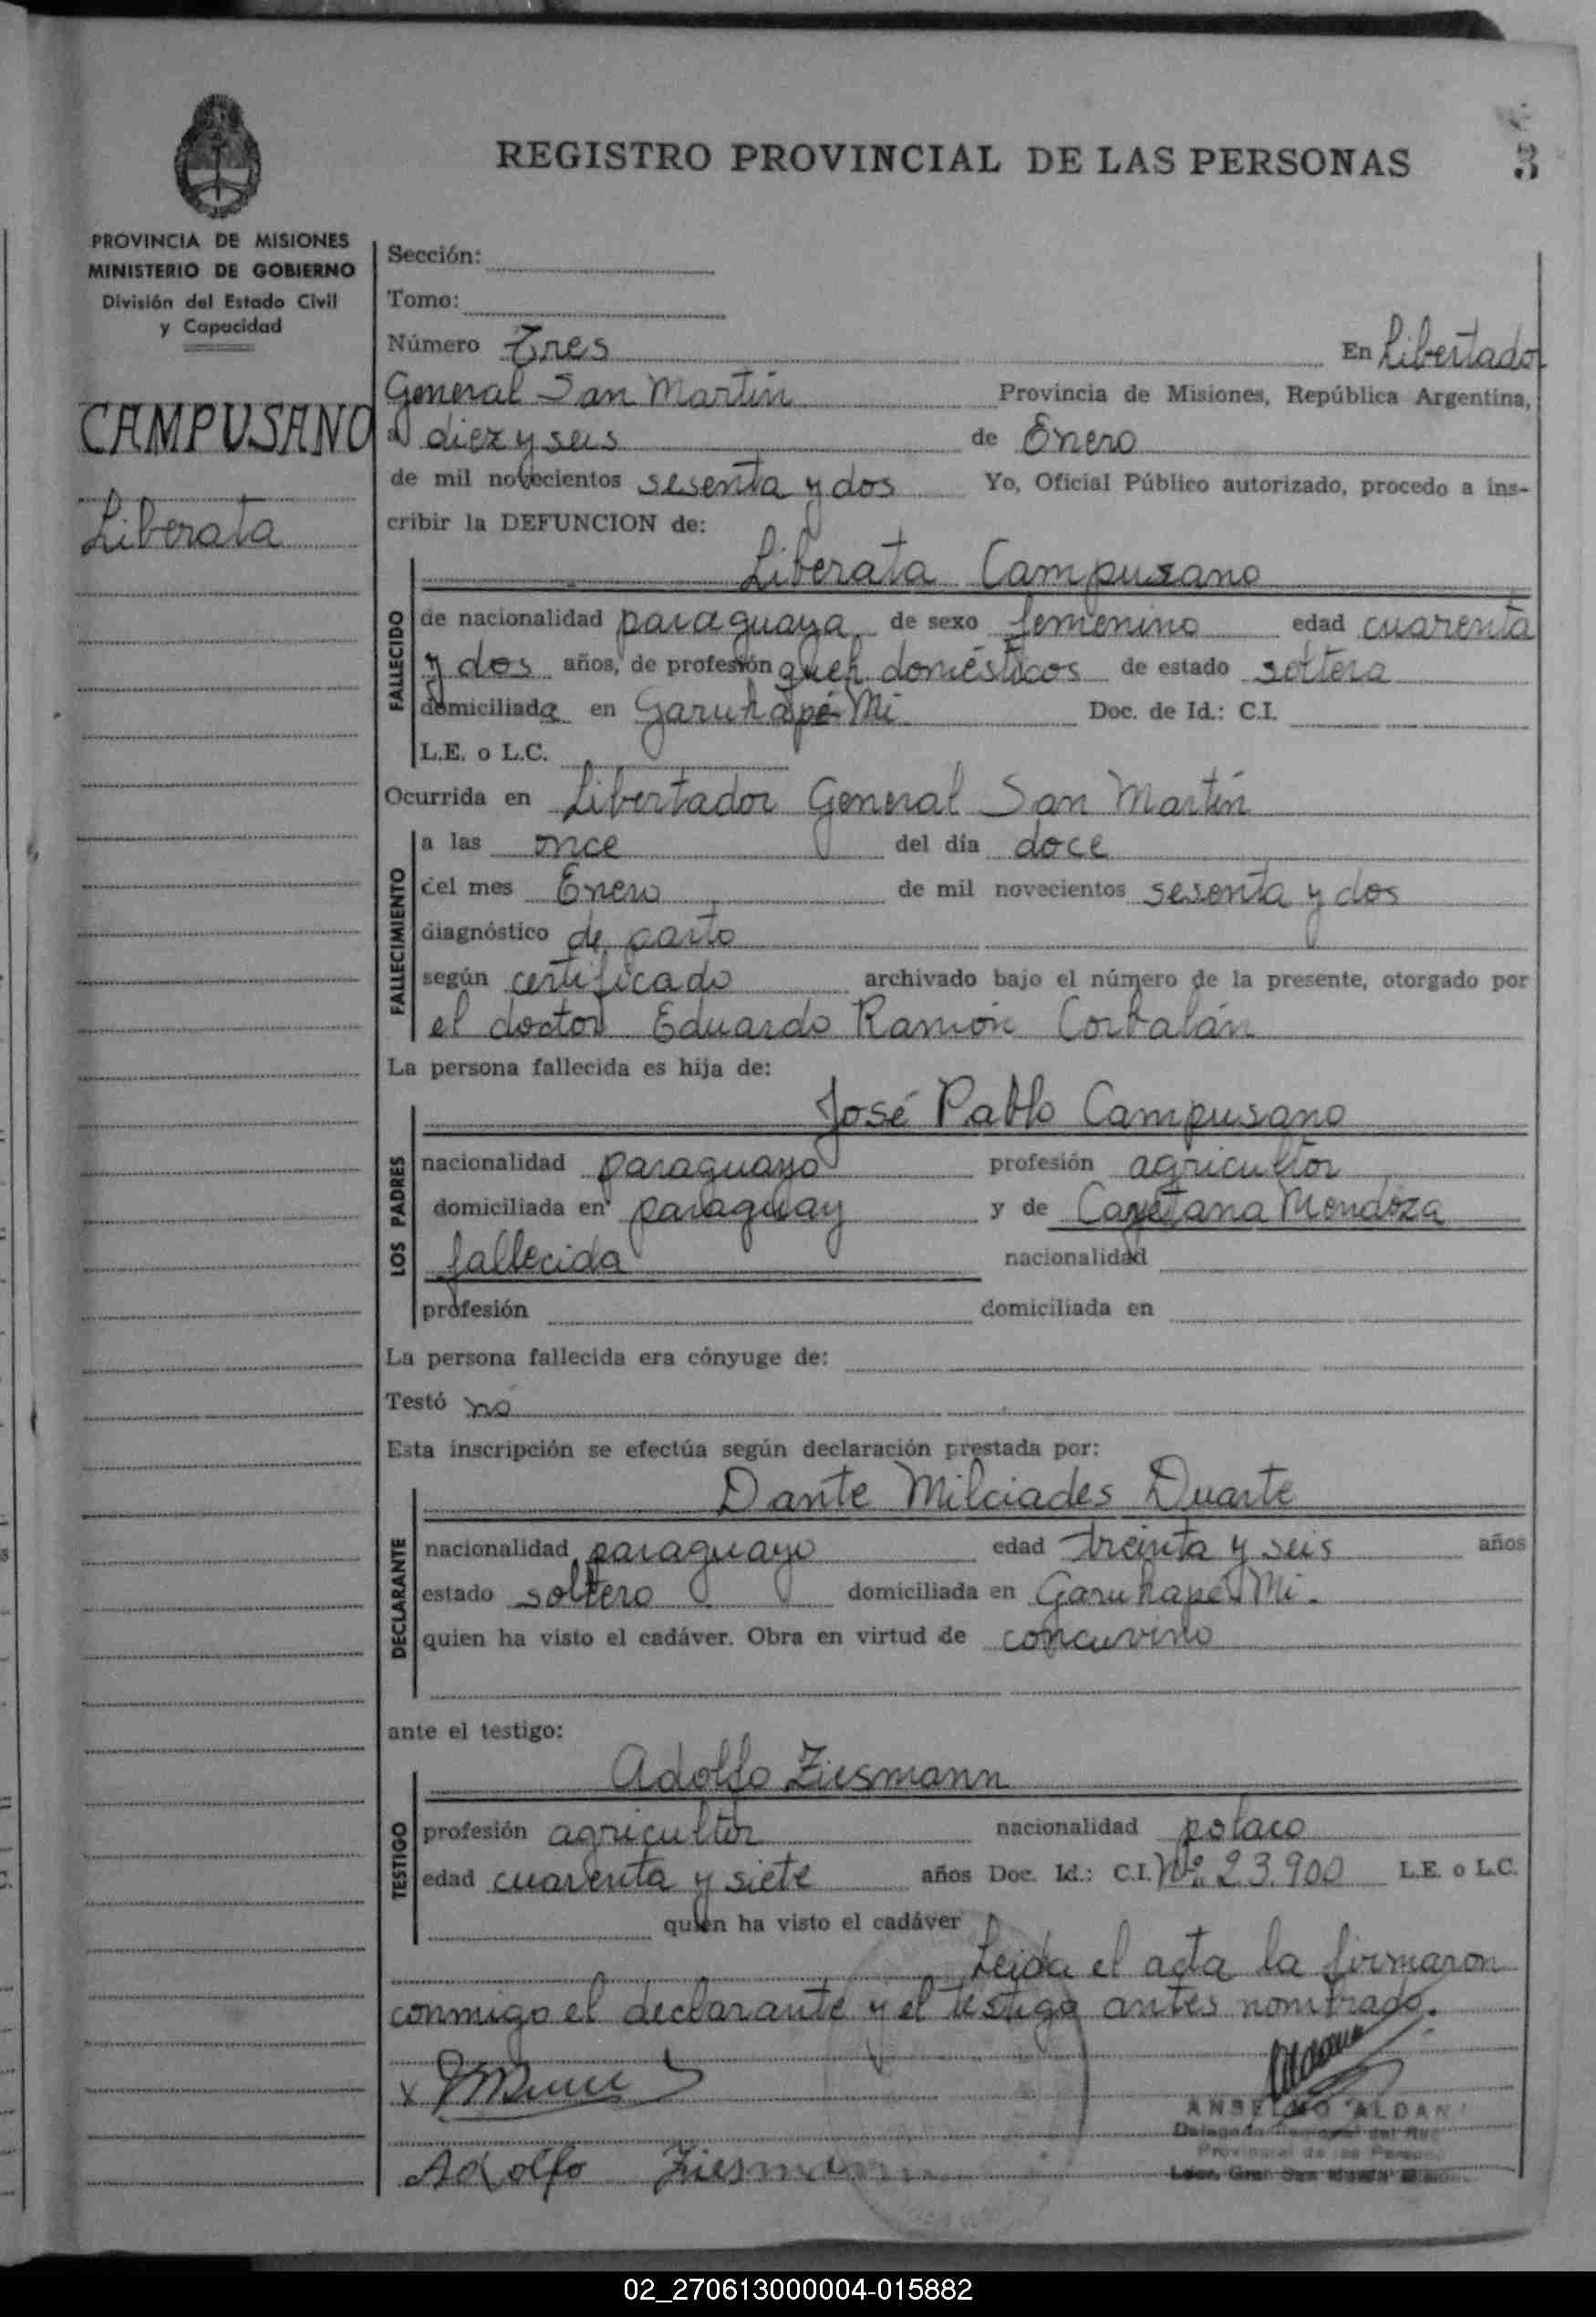 REGISTRO PROVINCIAL DE LAS PERSONAS
3
PROVINCIA DE MISIONES
MINISTERIO DE GOBIERNO
División del Estado Civil
y Capacidad
CAMPUSANO
Liberata
Sección:
Tomo:
Número Tres En Libertador
General San Martín Provincia de Misiones, República Argentina,
a diez y seis de Enero
de mil novecientos sesenta y dos Yo, Oficial Público autorizado, procedo a ins-
cribir la DEFUNCION de:
Liberata Campusano
FALLECIDO
de nacionalidad paraguaya de sexo femenino edad cuarenta
y dos años, de profesión queh domésticos de estado soltera
domiciliada en Garuhapé Mi Doc. de Id.: C.I.
L.E. o L.C.
Ocurrida en Libertador General San Martín
FALLECIMIENTO
a las once del día doce
del mes Enero de mil novecientos sesenta y dos
diagnóstico de parto
según certificado archivado bajo el número de la presente, otorgado por
el doctor Eduardo Ramón Corbalán
La persona fallecida es hija de:
José Pablo Campusano
LOS PADRES
nacionalidad paraguayo profesión agricultor
domiciliada en paraguay y de Cayetana Mendoza
fallecida nacionalidad
profesión domiciliada en
La persona fallecida era cónyuge de:
Testó no
Esta inscripción se efectúa según declaración prestada por:
Dante Milciades Duarte
DECLARANTE
nacionalidad paraguayo edad treinta y seis años
estado soltero domiciliada en Garuhapé Mi.
quien ha visto el cadáver. Obra en virtud de concuvino
ante el testigo:
Adolfo Ziesmann
TESTIGO
profesión agricultor nacionalidad polaco
edad cuarenta y siete años Doc. Id.: C.I. Nº 23.900 L.E. o L.C.
quien ha visto el cadáver
Leida el acta la firmaron
conmigo el declarante y el testigo antes nombrado.
X
ANSELMO ALDAN
Delegado
Provincial de las
Adolfo Ziesmann
Ldor. Gral San Martín
02_270613000004-015882